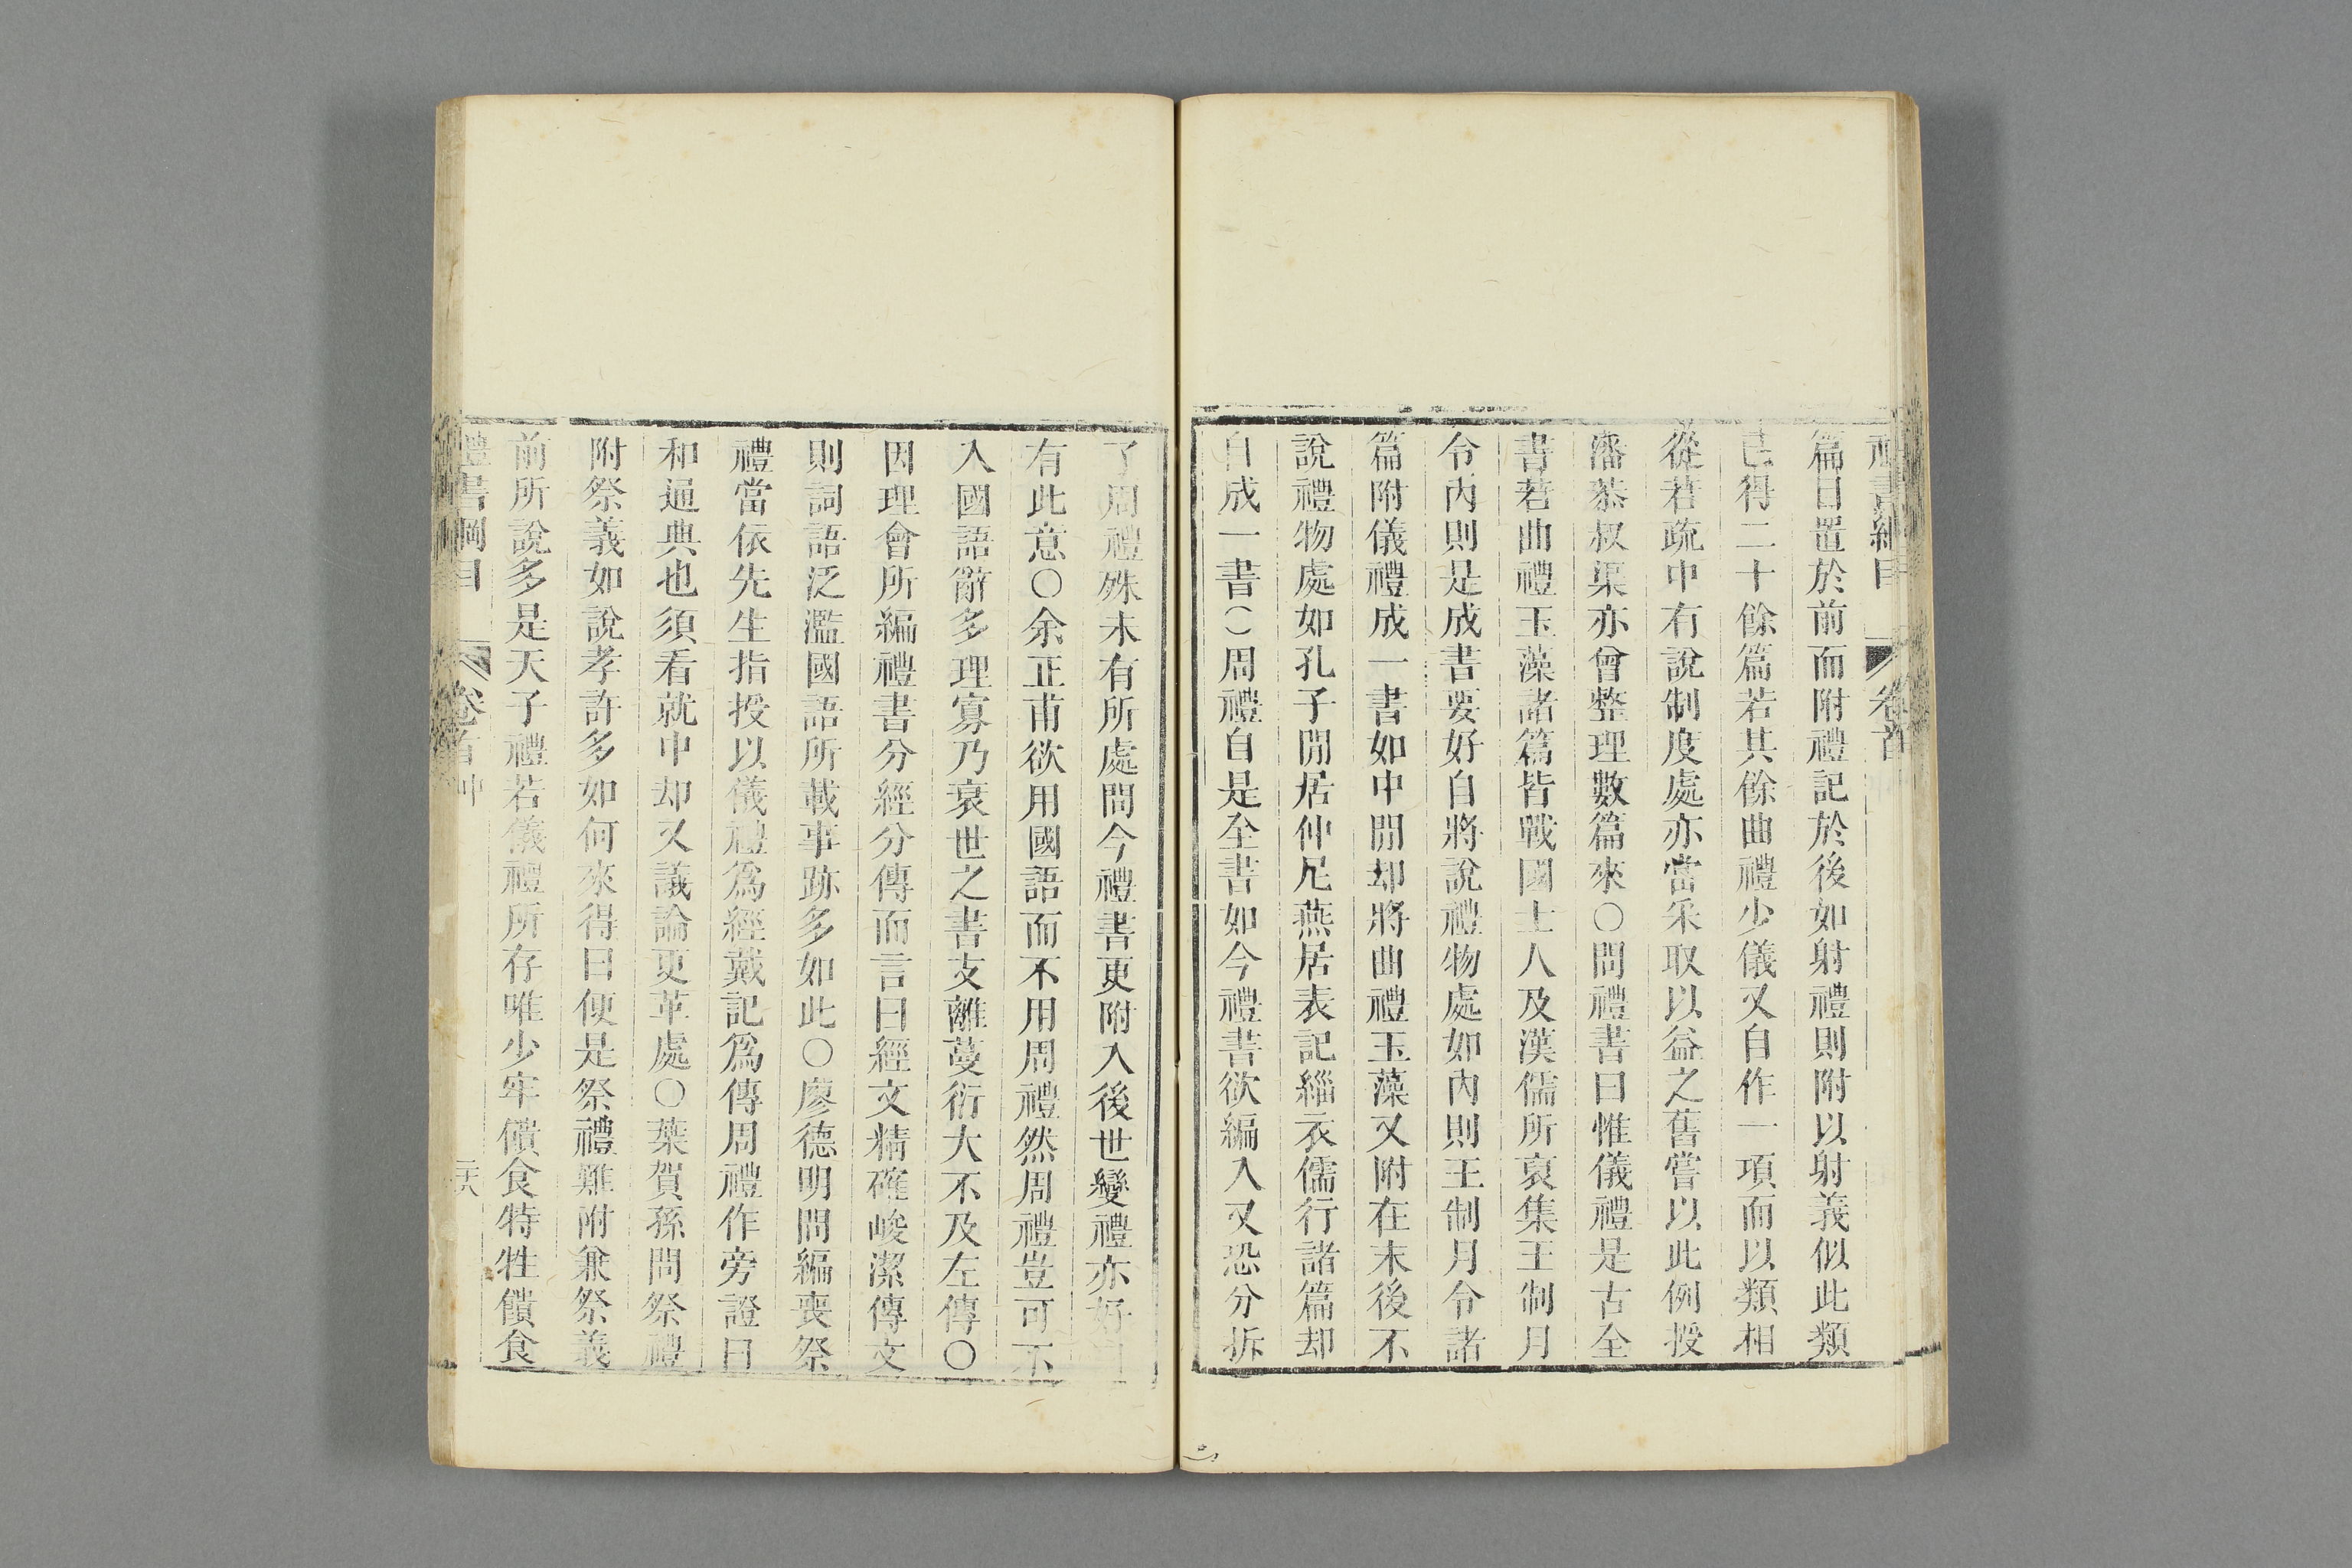 禮書綱目 卷首
篇目置於前而附禮記於後如射禮則附以射義似此類
已得二十餘篇若其餘曲禮少儀又自作一項而以類相
從若疏中有說制度處亦當采取以益之舊嘗以此例授
潘恭叔渠亦曾整理數篇來○問禮書曰惟儀禮是古全
書若曲禮玉藻諸篇皆戰國士人及漢儒所裒集王制月
令內則是成書要好自將說禮物處如內則王制月令諸
篇附儀禮成一書如中間却將曲禮玉藻又附在末後不
說禮物處如孔子閒居仲尼燕居表記緇衣儒行諸篇却
自成一書○周禮自是全書如今禮書欲編入又恐分拆
了周禮殊未有所處問今禮書更附入後世變禮亦好
有此意○余正甫欲用國語而不用周禮然周禮豈可不
入國語辭多理寡乃衰世之書支離蔓衍大不及左傳○
因理會所編禮書分經分傳而言曰經文精確峻潔傳文
則詞語泛濫國語所載事跡多如此○廖德明問編喪祭
禮當依先生指授以儀禮爲經戴記爲傳周禮作旁證曰
和通典也須看就中却又議論更革處○葉賀孫問祭禮
附祭義如說孝許多如何來得曰便是祭禮難附兼祭義
前所說多是天子禮若儀禮所存唯少牢饋食特牲饋食
禮書綱目 卷首中 二六